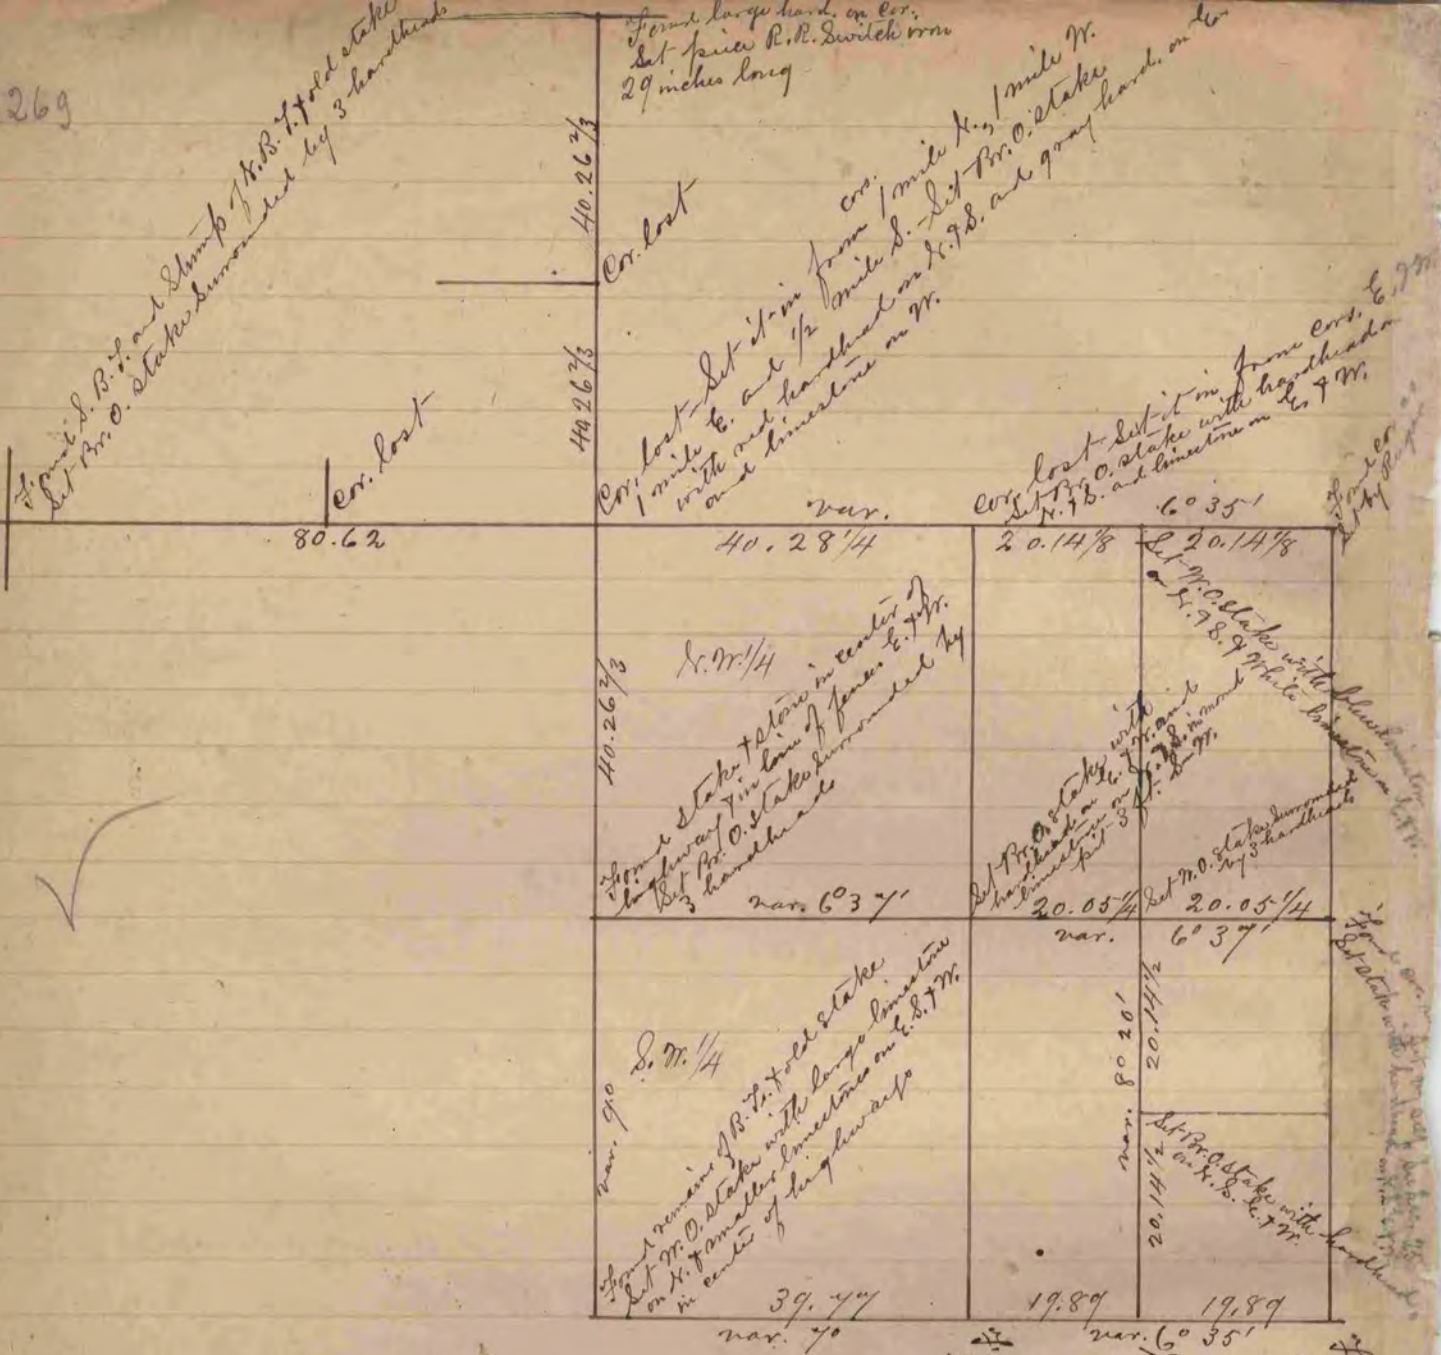 269
Found S. B. T. and Stump of N. B. T. & old stake
Set Br. O. stake surrounded by 3 hardheads
Found large hard. on cor.
Set piece R.R. Switch iron
29 inches long
40.26 2/3
Cor. lost
40.26 2/3
Cor. lost
80.62
Cor. lost - Set it in from cors. 1 mile N., 1 mile W.
1 mile E. and 1/2 mile S. - Set Br. O. stake
with red hardhead on N. & S. and gray hard. on E.
and limestone on W.
Cor. lost Set it in from cors. E. & W.
Set Br. O. stake with hardhead on
N. & S. and limestone on E. & W.
Found cor.
set by
var.
6° 35'
40.28 1/4
20.14 1/8
20.14 1/8
Set W. O. stake with blue limestone
on N. & S. & White limestone on E. & W.
N.W. 1/4
40.26 2/3
Found stake & stone in center of
highway & in line of fences E. & W.
Set Br. O. stake surrounded by
3 hardheads
Set Br. O. stake with
hardhead on E. & W. and
limestone on N. & S. in mound
pit 3 ft. on W.
Set W. O. stake surrounded
by 3 hardheads
var. 6° 37'
20.05 1/4
20.05 1/4
var.
6° 37'
Found cor.
Set stake with hardhead on
S. W. 1/4
var. 9°
Found remains of B. T. & old stake
Set W. O. stake with large limestone
on N. & smaller limestones on E. S. & W.
in center of highway
var. 8° 20'
20.14 1/2
20.14 1/2
Set Br. O. stake with hardheads
on N. S. E. & W.
39.77
19.89
19.89
var. 7°
var. 6° 35'